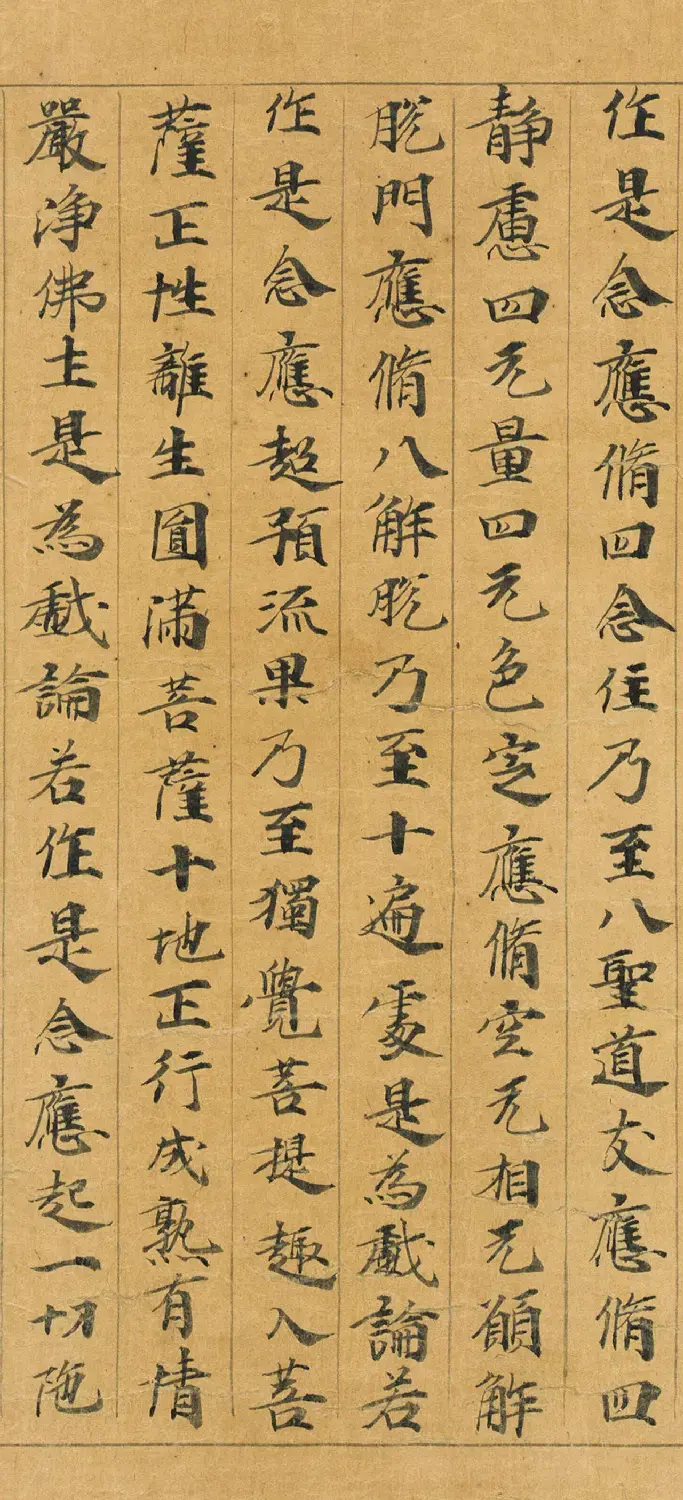 作是念應脩四念住乃至八聖道支應脩四
静慮四无量四无色定應脩空无相无願解
脫門應脩八解脫乃至十遍處是為戲論若
作是念應超預流果乃至獨覺菩提趣入菩
薩正性離生圓滿菩薩十地正行成熟有情
嚴淨佛土是為戲論若作是念應起一切陁